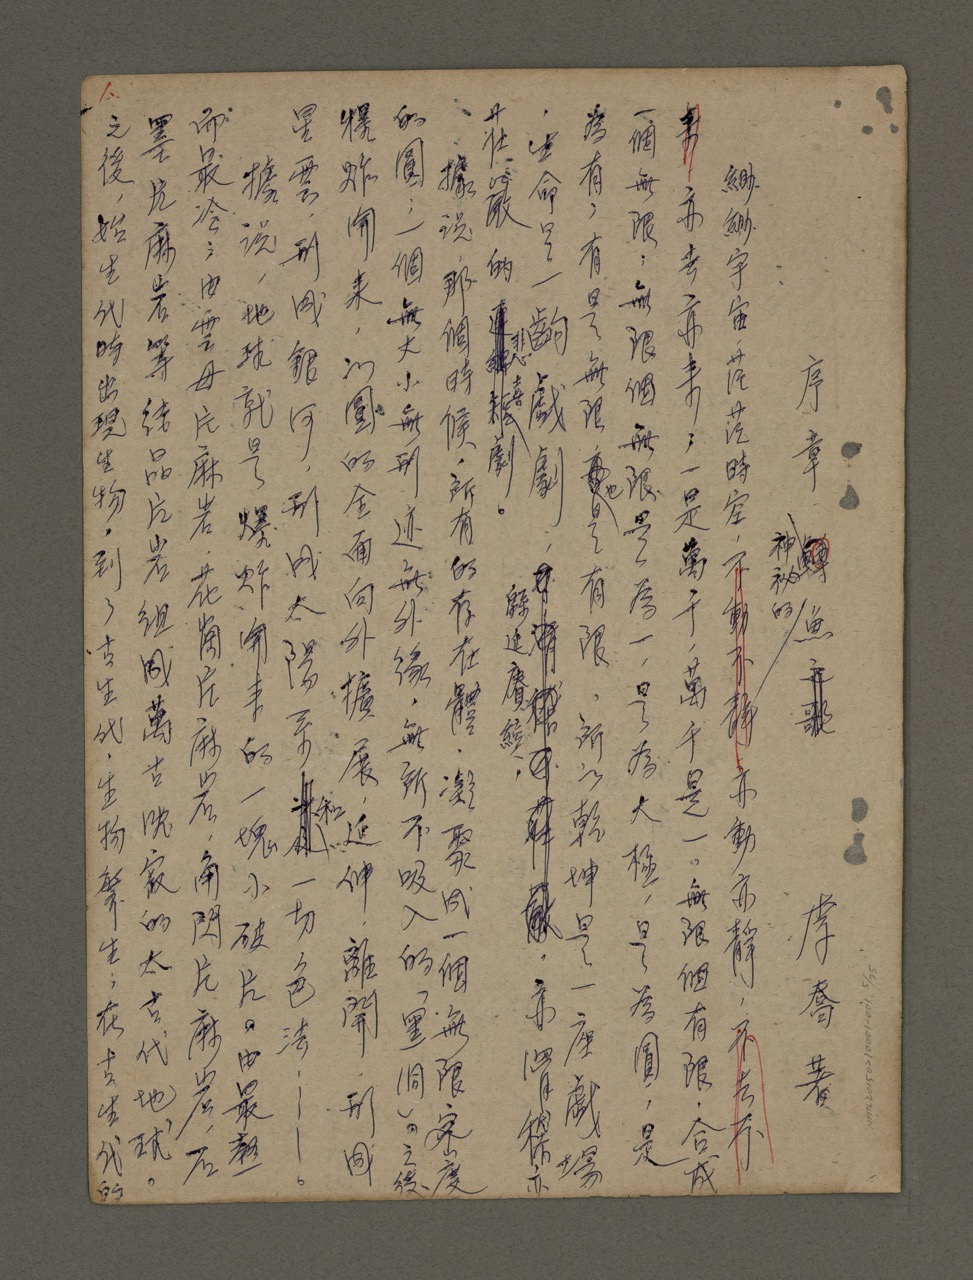 序章 神祕的鱄魚之歌 李喬 著
緲緲宇宙，茫茫時空，不動不靜亦動亦靜，不去不
來亦去亦來；一是萬千，萬千是一。無限個有限，合成
一個無限；無限個無限是為一，是為太極，是為圓，是
為有；有是無限，也是有限。所以乾坤是一座戲場
，生命是一齣戲劇，緜延賡續；亦滑稽亦
莊嚴的悲喜劇。
據說，那個時候，所有的存在體，凝聚成一個無限密度
的圓；一個無大小無形迹無外緣，無所不吸入的「黑洞」。之後
爆炸開來，以圓的全面向外擴展，延伸，離開，形成
星雲，形成銀河，形成太陽系和一切色法———。
據說，地球就是爆炸開來的一塊小破片。由最熱
而最冷；由雲母片麻岩，花崗片麻岩，角閃片麻岩，石
墨片麻岩等結晶片岩組成萬古沈寂的太古代地球。
之後，始生代時出現生物，到了古生代，生物羣生；在古生代的
VM2015021000-001 5/75